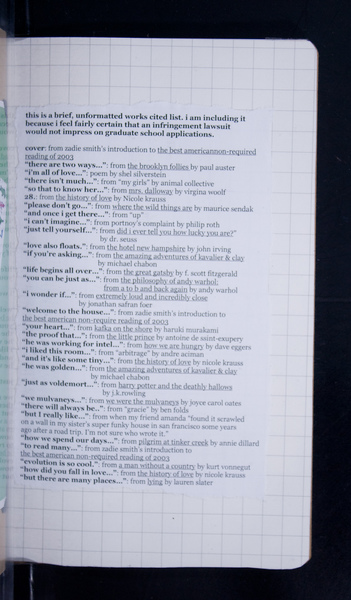 this is a brief, unformatted works cited list. i am including it
because i feel fairly certain that an infringement lawsuit
would not impress on graduate school applications.
cover: from zadie smith's introduction to the best americannon-required
reading of 2003
"there are two ways...": from the brooklyn follies by paul auster
"i'm all of love...": poem by shel silverstein
"there isn't much...": from "my girls" by animal collective
"so that to know her...": from mrs. dalloway by virgina woolf
28.: from the history of love by Nicole krauss
"please don't go...": from where the wild things are by maurice sendak
"and once i get there...": from "up"
"i can't imagine...: from portnoy's complaint by philip roth
"just tell yourself...": from did i ever tell you how lucky you are?"
by dr. seuss
"love also floats.": from the hotel new hampshire by john irving
"if you're asking...": from the amazing adventures of kavalier & clay
by michael chabon
"life begins all over...": from the great gatsby by f. scott fitzgerald
"you can be just as...": from the philosophy of andy warhol:
from a to b and back again by andy warhol
"i wonder if...": from extremely loud and incredibly close
by jonathan safran foer
"welcome to the house...: from zadie smith's introduction to
the best american non-require reading of 2003
"your heart...": from kafka on the shore by haruki murakami
"the proof that...": from the little prince by antoine de saint-exupery
"he was working for intel...": from how we are hungry by dave eggers
"i liked this room...": from "arbitrage" by andre aciman
"and it's like some tiny...: from the history of love by nicole krauss
"he was golden...": from the amazing adventures of kavalier & clay
by michael chabon
"just as voldemort...": from harry potter and the deathly hallows
by j.k.rowling
"we mulvaneys...": from we were the mulvaneys by joyce carol oates
"there will always be..": from "gracie" by ben folds
"but I really like...": from when my friend amanda "found it scrawled
on a wall in my sister's super funky house in san francisco some years
ago after a road trip. I'm not sure who wrote it."
"how we spend our days...": from pilgrim at tinker creek by annie dillard
"to read many...": from zadie smith's introduction to
the best american non-required reading of 2003
"evolution is so cool." from a man without a country by kurt vonnegut
"how did you fall in love...": from the history of love by nicole krauss
"but there are many places...": from lying by lauren slater